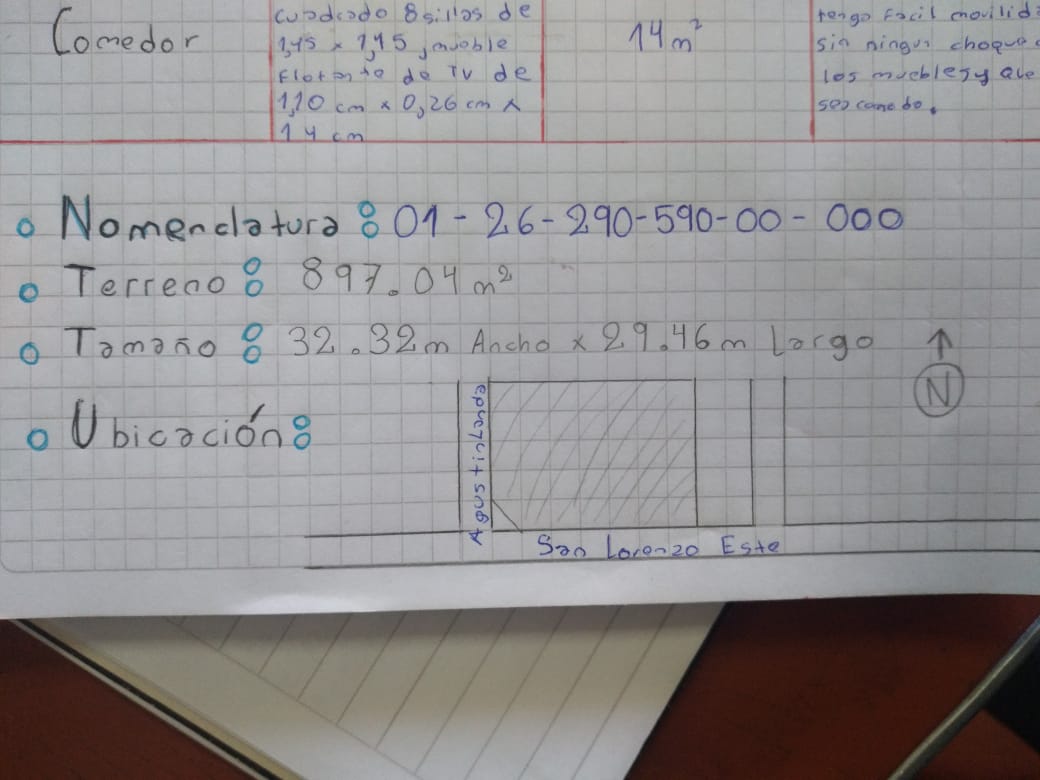 Comedor
cuadrado 8 sillas de
1,45 x 1,45, mueble
flotante de TV de
1,10 cm x 0,26 cm x
14 cm
14 m²
tenga facil movilid
sin ningun choque
los muebles, y que
sea comodo.
Nomenclatura: 01-26-290-590-00-000
Terreno: 897.04 m²
Tamaño: 32.32m Ancho x 29.46m Largo
Ubicación:
Agustin Landa
San Lorenzo Este
N